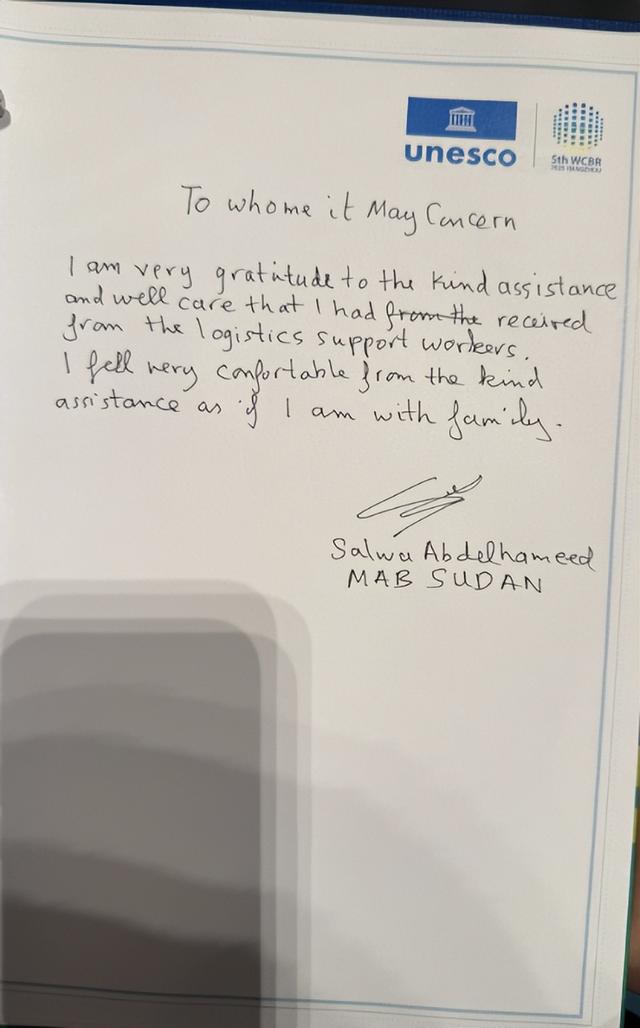 unesco
5th WCBR
2025 HANGZHOU
To whome it May Concern
I am very gratitude to the kind assistance
and well care that I had from the received
from the logistics support workers.
I fell very confortable from the kind
assistance as if I am with family.
Salwa Abdelhameed
MAB SUDAN